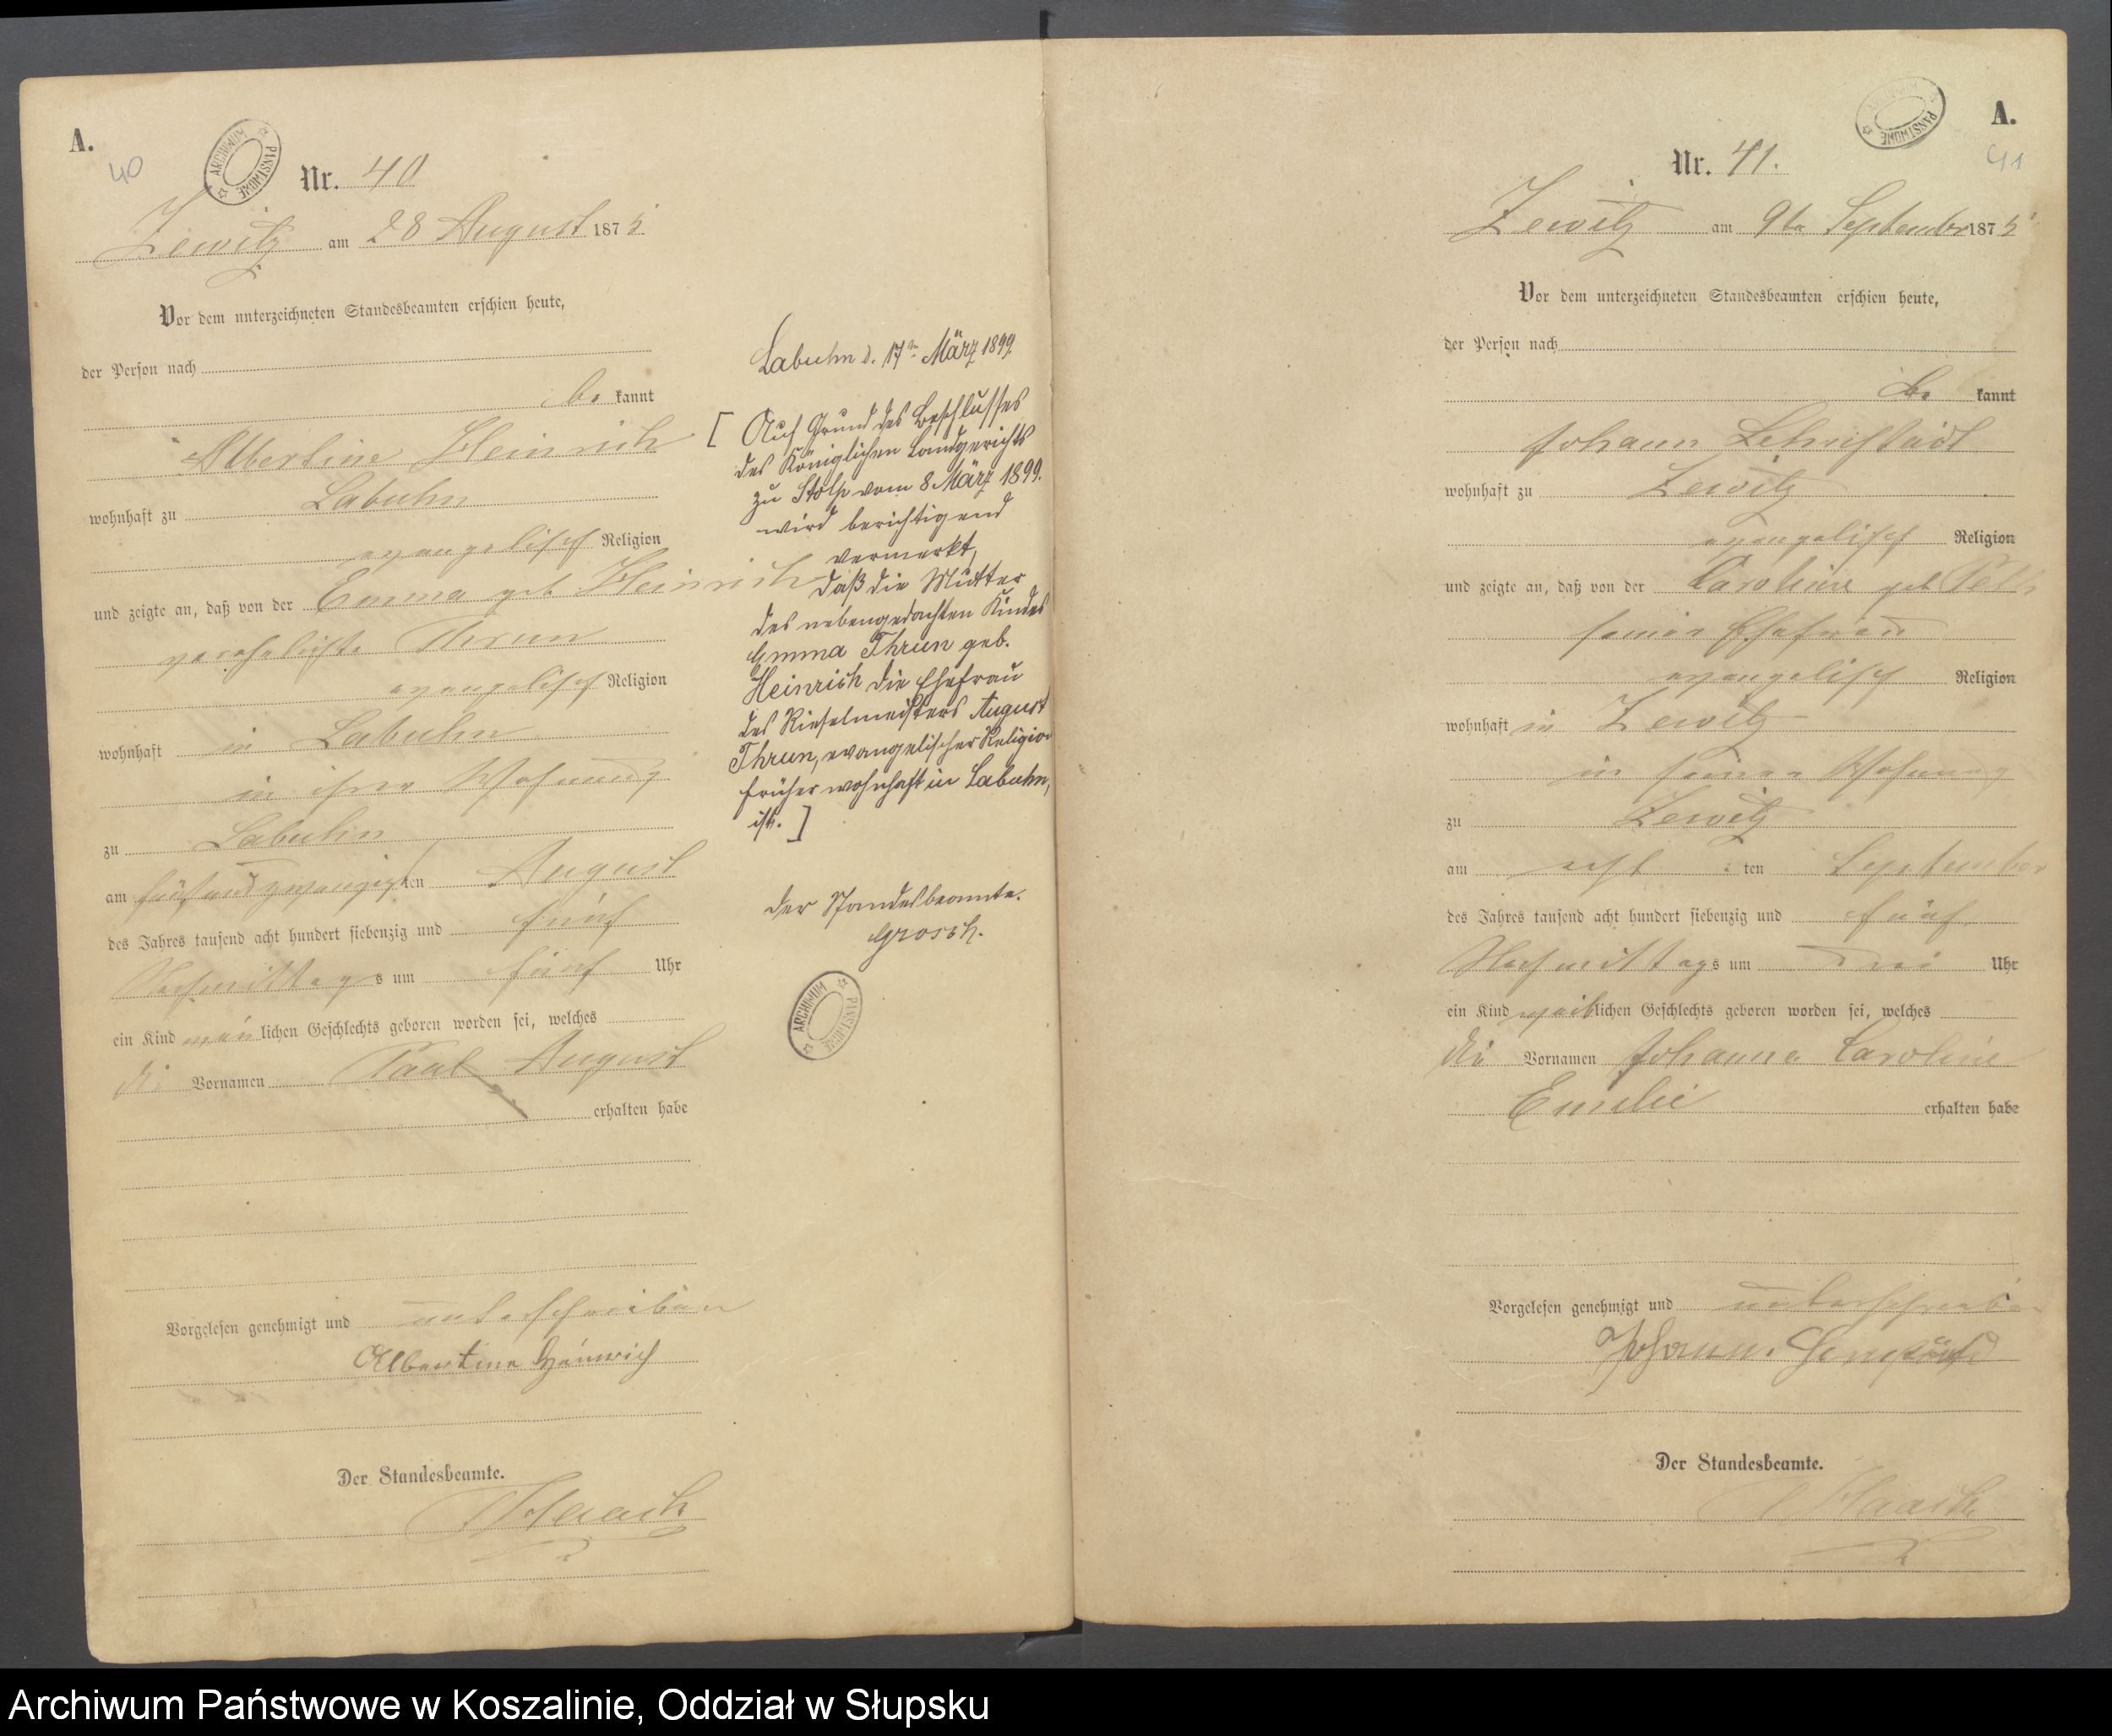 A.
40
ARCHIWUM PAŃSTWOWE
Nr. 40
Zewitz am 28 August 1875
Vor dem unterzeichneten Standesbeamten erschien heute,
der Person nach
be kannt
Albertine Heinrich
wohnhaft zu Labuhn
evangelisch Religion
und zeigte an, daß von der Emma geb Heinrich
verehelichte Thrun
evangelisch Religion
wohnhaft in Labuhn
in ihrer Wohnung
zu Labuhn
am fünfundzwanzigsten August
des Jahres tausend acht hundert siebenzig und fünf
Nachmittags um fünf Uhr
ein Kind männlichen Geschlechts geboren worden sei, welches
die Vornamen Paul August
erhalten habe
Vorgelesen genehmigt und unterschrieben
Albertine Heinrich
Der Standesbeamte.
Haack
Labuhn d. 17ten März 1899.
[ Auf Grund des Beschlusses
des Königlichen Landgerichts
zu Stolp vom 8 März 1899.
wird berichtigend
vermerkt,
daß die Mutter
des nebengedachten Kindes
Emma Thrun geb.
Heinrich die Ehefrau
des Rieselmeisters August
Thrun, evangelischer Religion
früher wohnhaft in Labuhn,
ist. ]
Der Standesbeamte.
Grosch.
ARCHIWUM PAŃSTWOWE
ARCHIWUM PAŃSTWOWE
A.
41
Nr. 41.
Zewitz am 9ten September 1875
Vor dem unterzeichneten Standesbeamten erschien heute,
der Person nach
be kannt
Johann
wohnhaft zu Zewitz
evangelisch Religion
und zeigte an, daß von der Caroline geb
seiner Ehefrau
evangelisch Religion
wohnhaft in Zewitz
in seiner Wohnung
zu Zewitz
am acht ten September
des Jahres tausend acht hundert siebenzig und fünf
Nachmittags um drei Uhr
ein Kind weiblichen Geschlechts geboren worden sei, welches
die Vornamen Johanna Caroline
Emilie erhalten habe
Vorgelesen genehmigt und unterschrieben
Johann
Der Standesbeamte.
Haack
Archiwum Państwowe w Koszalinie, Oddział w Słupsku